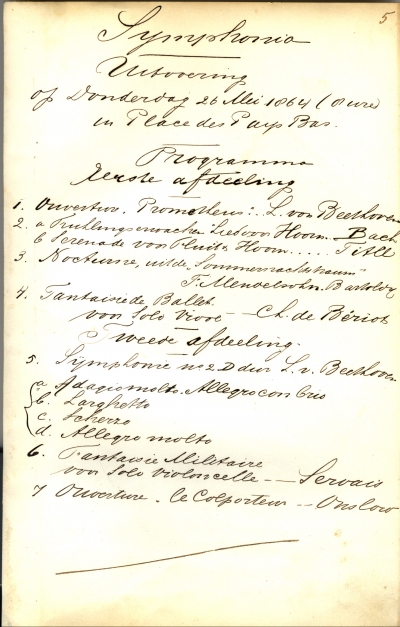 5
Symphonia
Uitvoering
op Donderdag 26 Mei 1864 (8 ure)
in Place des Pays Bas.
Programma
Eerste afdeeling
1. Ouverture. Prometheus... L. von Beethoven
2. a Fruhlingserwachen Lied voor Hoorn Bach
b Serenade voor Fluit & Hoorn...... Titll
3. Nocturne, uit de "Sommernachtstraum"
F. Mendelsohn. Bartoldy
4. Fantaisie de Ballet
voor Solo Viool — Ch. de Bériot
Tweede afdeeling.
5. Symphonie no 2. D dur L. v. Beethoven
a. Adagio molto. Allegro con brio
b. Larghetto
c. Scherzo
d. Allegro molto
6. Fantaisie Militaire
voor Solo Violoncelle — — Servais
7 Ouverture. Le Colporteur — Onslow